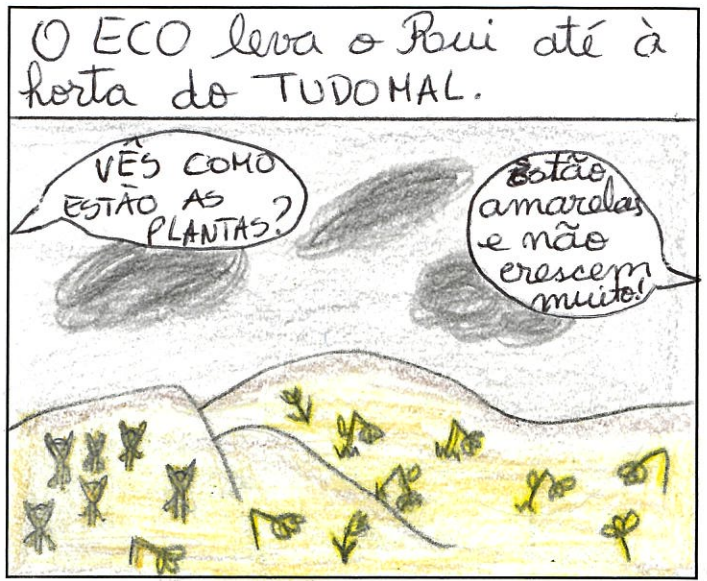 O ECO leva o Rui até à
horta do TUDOMAL.
VÊS COMO
ESTÃO AS
PLANTAS?
Estão
amarelas
e não
crescem
muito!